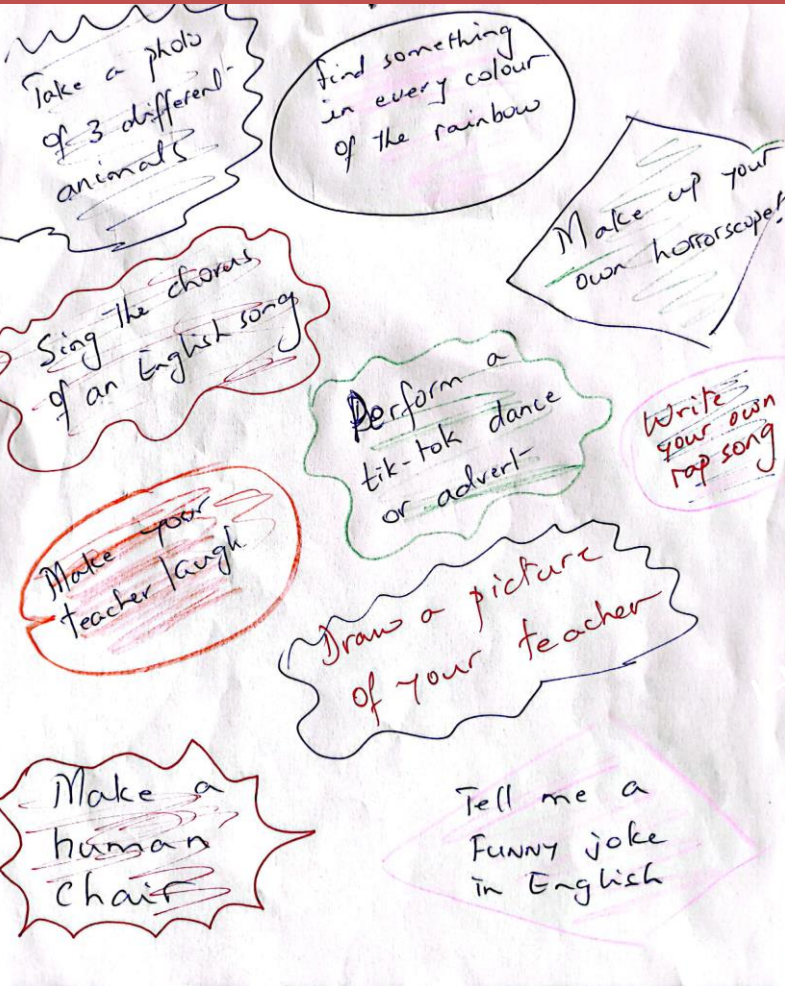 Take a photo
of 3 different
animals
find something
in every colour
of the rainbow
Make up your
own horrorscope!
Sing the chorus
of an English song
Perform a
tik-tok dance
or advert
Write
your own
rap song
Make your
teacher laugh
Draw a picture
of your teacher
Make a
human
chair
Tell me a
FUNNY joke
in English